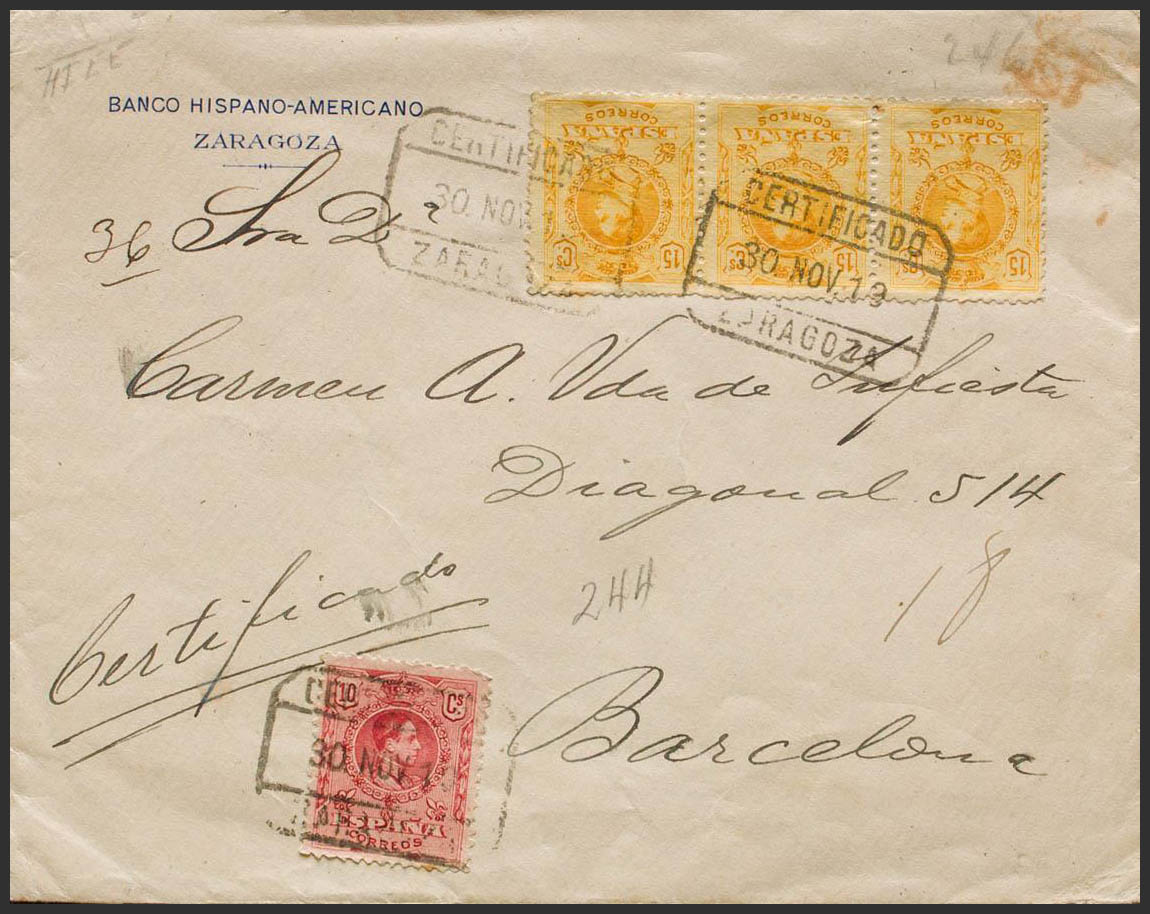 BANCO HISPANO-AMERICANO
ZARAGOZA
CERTIFICADO
30 NOV.
ZARAGOZA
ESPAÑA
CORREOS
15 Cs
ESPAÑA
CORREOS
15 Cs
ESPAÑA
CORREOS
15 Cs
CERTIFICADO
30 NOV. 19
ZARAGOZA
36 Sra Dª
Carmen A. Vda de Infiesta
Diagonal 514
Certificado
244
18
Barcelona
10 Cs
30 NOV.
ESPAÑA
CORREOS